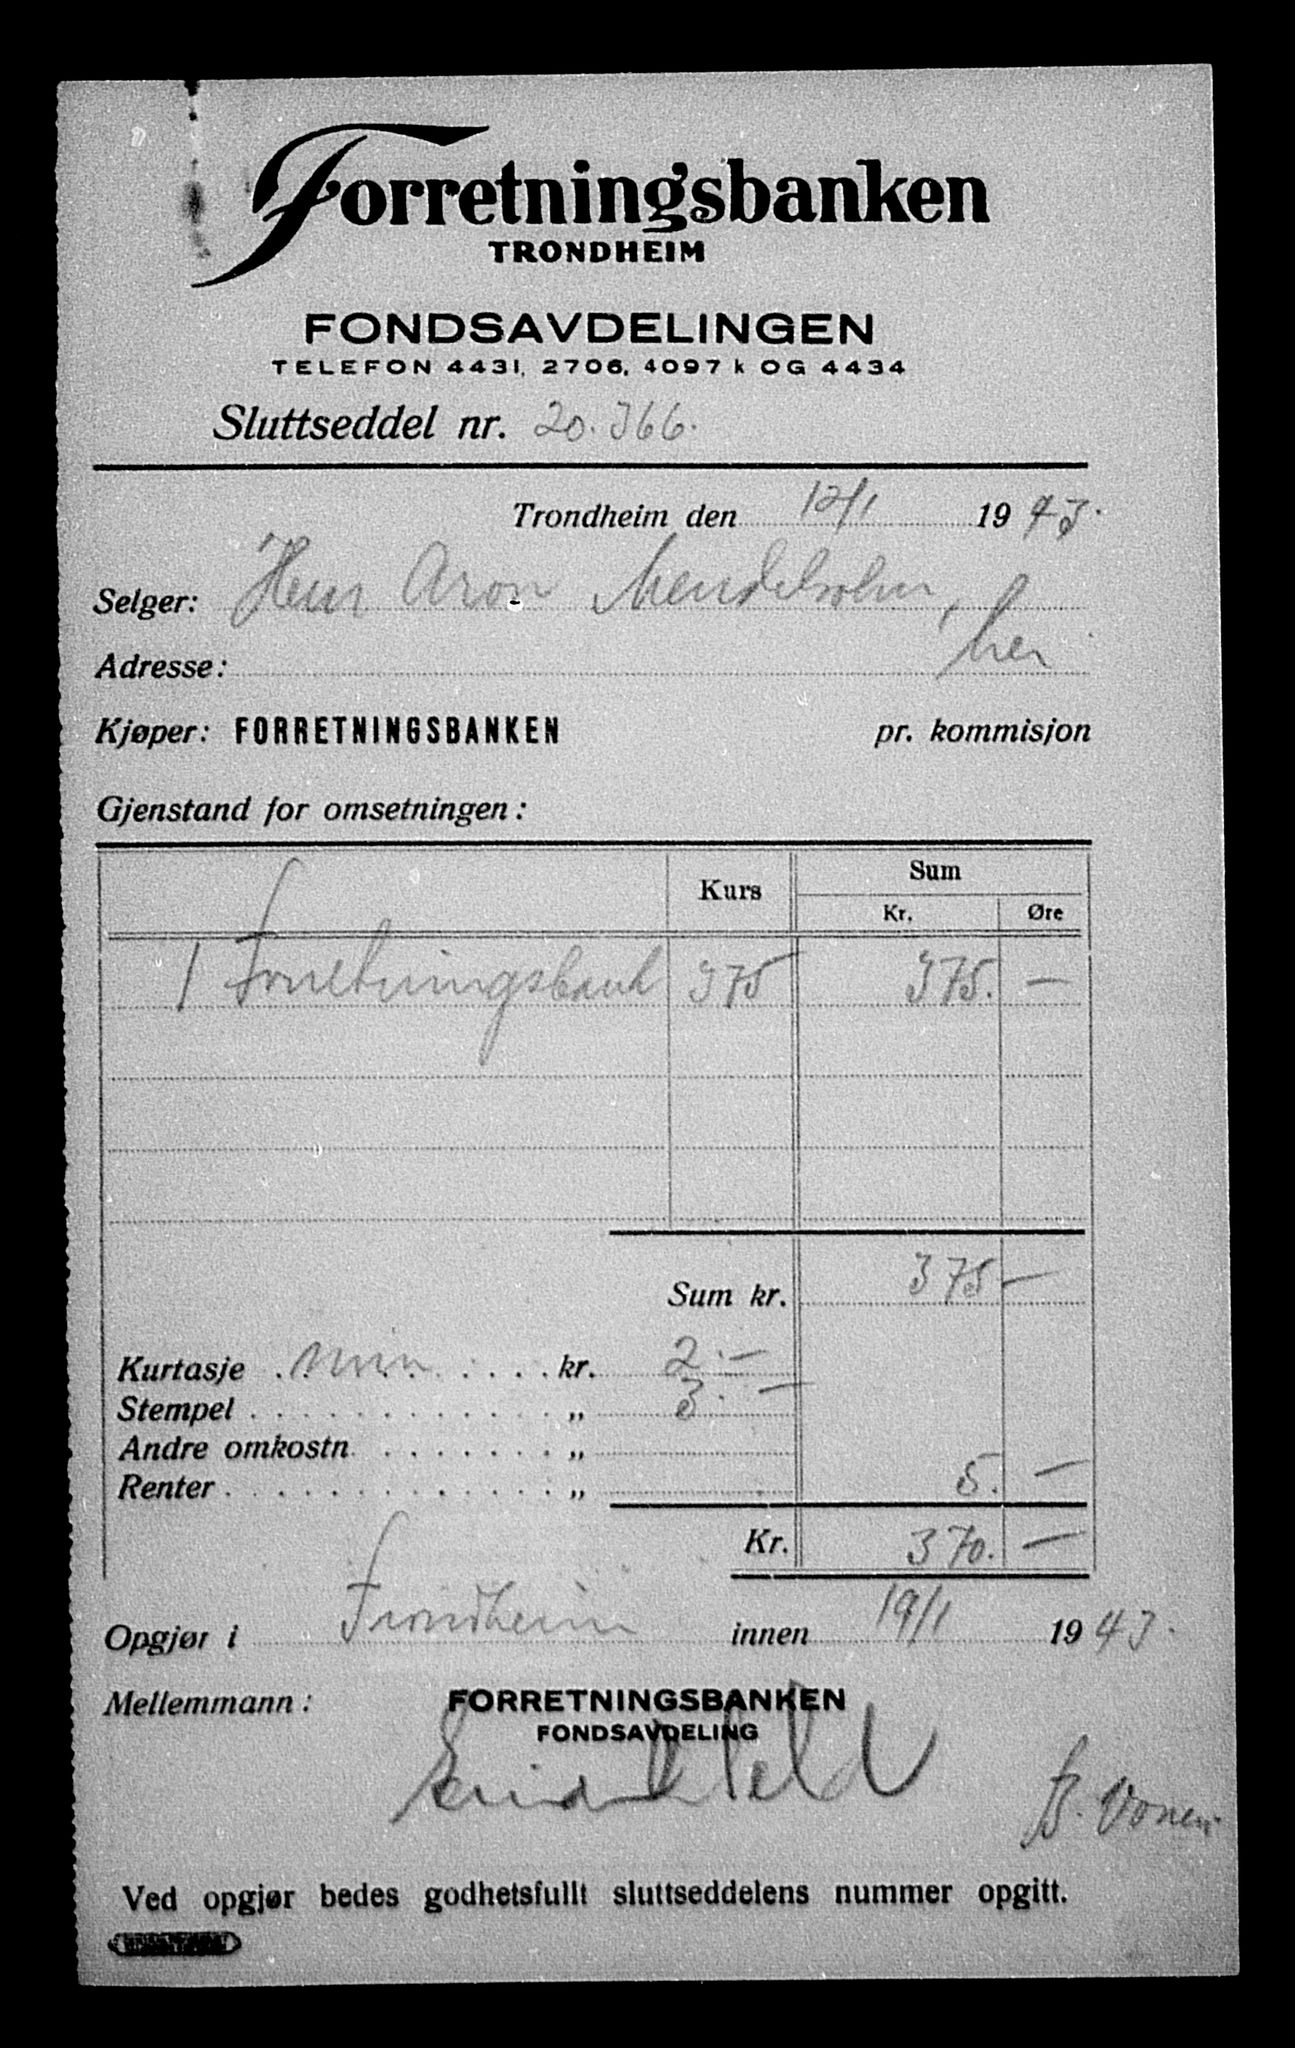 Forretningsbanken
TRONDHEIM
FONDSAVDELINGEN
TELEFON 4431, 2706, 4097 k OG 4434
Sluttseddel nr. 20.366.
Trondheim den 12/1 1943.
Selger: Herr Aron Mendelsohn,
Adresse: her
Kjøper: FORRETNINGSBANKEN pr. kommisjon
Gjenstand for omsetningen:
Kurs Sum
Kr. Øre
1 Forretningsbank 375 375. —
Sum kr. 375 —
Kurtasje . min . . . . kr. 2.—
Stempel . . . . . . . . . . . . „ 3.—
Andre omkostn. . . . . . . . „
Renter . . . . . . . . . . . . . „ 5. —
Kr. 370. —
Opgjør i Trondheim innen 19/1 1943.
Mellemmann: FORRETNINGSBANKEN
FONDSAVDELING
B. Vonen
Ved opgjør bedes godhetsfullt sluttseddelens nummer opgitt.